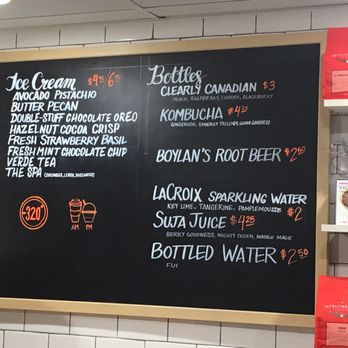 Ice Cream $4.25/6.25
AVOCADO PISTACHIO
BUTTER PECAN
DOUBLE-STUFF CHOCOLATE OREO
HAZELNUT COCOA CRISP
FRESH STRAWBERRY BASIL
FRESH MINT CHOCOLATE CHIP
VERDE TEA
THE SPA (CUCUMBER, LEMON, ROSEWATER)
-320°
AM PM
Bottles
CLEARLY CANADIAN $3
PEACH, RASPBERRY, CHERRY, BLACKBERRY
KOMBUCHA $4.25
GINGERADE, SYNERGY TRILOGY,
BOYLAN'S ROOT BEER $2.50
LACROIX SPARKLING WATER
KEY LIME, TANGERINE, PAMPLEMOUSSE $2
SUJA JUICE $4.25
BERRY GOODNESS, MIGHTY DOZEN, MANGO MAGIC
BOTTLED WATER $2.50
FIJI